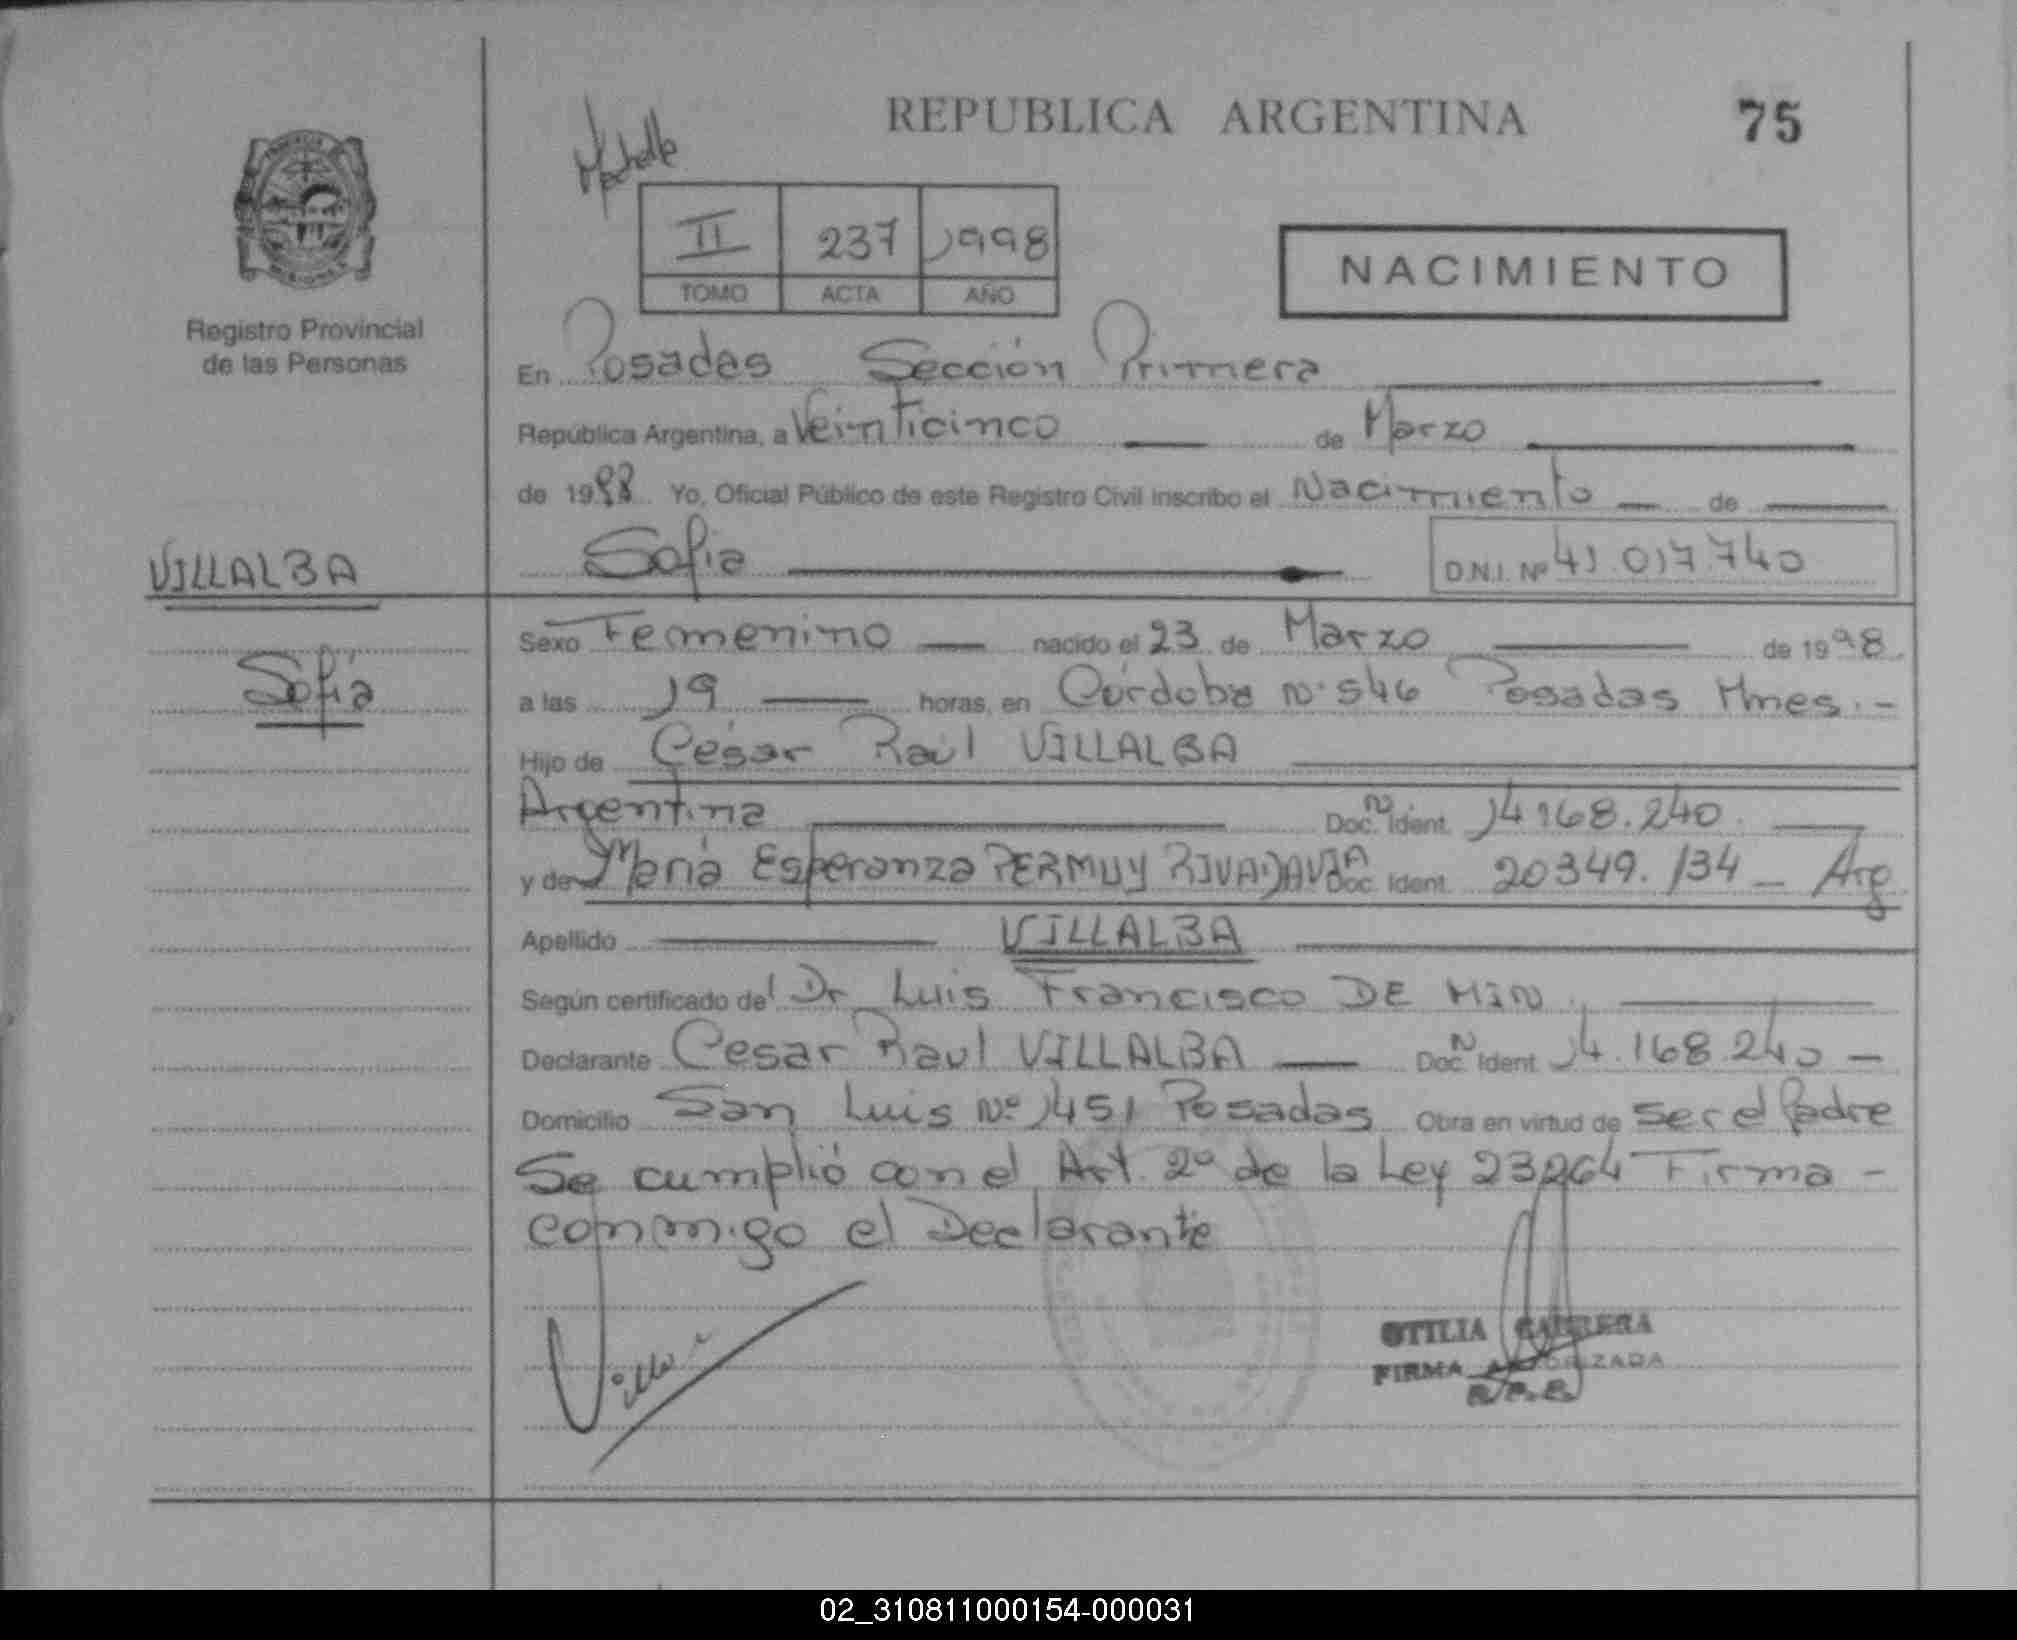 REPUBLICA ARGENTINA
75
II 237 1998
TOMO ACTA AÑO
NACIMIENTO
Registro Provincial
de las Personas
En Posadas Sección Primera
República Argentina, a Veinticinco de Marzo
de 1998 Yo, Oficial Público de este Registro Civil inscribo el Nacimiento de
VILLALBA
Sofia
D.N.I. Nº 41.017.740
Sexo Femenino nacido el 23 de Marzo de 1998
Sofia
a las 19 horas, en Córdoba Nº 546 Posadas Mnes.-
Hijo de César Raúl VILLALBA
Argentina Doc. N Ident. 14.168.240
y de María Esperanza PERMUY RIVADAVIA Doc. Ident. 20349.134 - Arg
Apellido VILLALBA
Según certificado del Dr Luis Francisco DE MIN.
Declarante Cesar Raul VILLALBA Doc. N Ident. 14.168.240 -
Domicilio San Luis Nº 1451 Posadas Obra en virtud de ser el Padre
Se cumplió con el Art. 2º de la Ley 23264 Firma -
conmigo el Declarante
OTILIA CABRERA
FIRMA AUTORIZADA
02_310811000154-000031